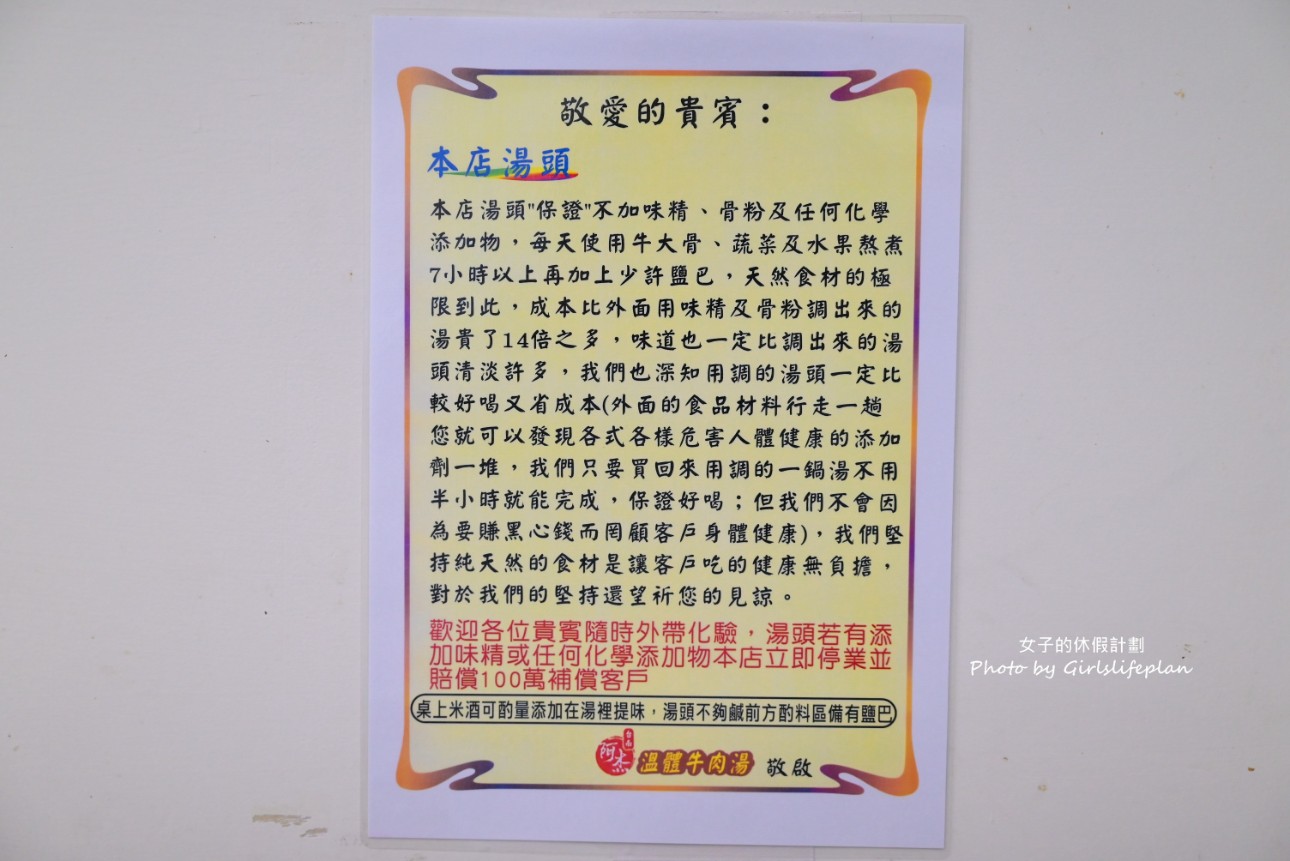 敬愛的貴賓：
本店湯頭
本店湯頭"保證"不加味精、骨粉及任何化學
添加物，每天使用牛大骨、蔬菜及水果熬煮
7小時以上再加上少許鹽巴，天然食材的極
限到此，成本比外面用味精及骨粉調出來的
湯貴了14倍之多，味道也一定比調出來的湯
頭清淡許多，我們也深知用調的湯頭一定比
較好喝又省成本(外面的食品材料行走一趟
您就可以發現各式各樣危害人體健康的添加
劑一堆，我們只要買回來用調的一鍋湯不用
半小時就能完成，保證好喝；但我們不會因
為要賺黑心錢而罔顧客戶身體健康)，我們堅
持純天然的食材是讓客戶吃的健康無負擔，
對於我們的堅持還望祈您的見諒。
歡迎各位貴賓隨時外帶化驗，湯頭若有添
加味精或任何化學添加物本店立即停業並
賠償100萬補償客戶
桌上米酒可酌量添加在湯裡提味，湯頭不夠鹹前方酌料區備有鹽巴
台南 阿杰 溫體牛肉湯 敬啟
女子的休假計劃
Photo by Girlslifeplan